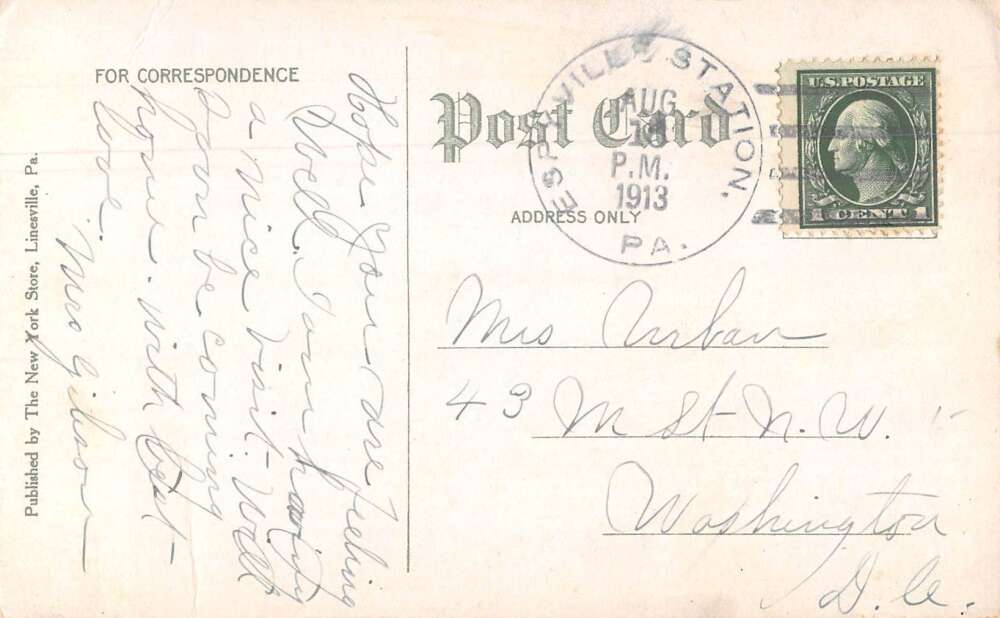 FOR CORRESPONDENCE
Hope you are feeling
Well. I am having
a nice visit. Will
soon be coming
home. with best
love.
Mrs Gibson
Published by The New York Store, Linesville, Pa.
Post Card
ADDRESS ONLY
ESPYVILLE STATION,
AUG
P.M.
1913
PA.
U.S. POSTAGE
1 CENT 1
Mrs Urban
43 M St N. W.
Washington
D. C.